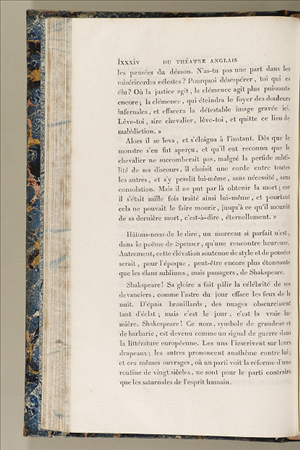 lxxxiv DU THÉATRE ANGLAIS
les pensées du démon. N'as-tu pas une part dans les
miséricordes célestes? Pourquoi désespérer, toi qui es
élu? Où la justice agit, la clémence agit plus puissante
encore; la clémence, qui éteindra le foyer des douleurs
infernales, et effacera la détestable image gravée ici.
Lève-toi, sire chevalier, lève-toi, et quitte ce lieu de
malédiction. »
Alors il se leva, et s'éloigna à l'instant. Dès que le
monstre s'en fut aperçu, et qu'il eut reconnu que le
chevalier ne succomberait pas, malgré la perfide subti-
lité de ses discours, il choisit une corde entre toutes
les autres, et s'y pendit lui-même, sans nécessité, sans
consolation. Mais il ne put par là obtenir la mort; car
il s'était mille fois traité ainsi lui-même, et pourtant
cela ne pouvait le faire mourir, jusqu'à ce qu'il mourût
de sa dernière mort, c'est-à-dire, éternellement. »
Hâtons-nous de le dire, un morceau si parfait n'est,
dans le poème de Spenser, qu'une rencontre heureuse.
Autrement, cette élévation soutenue de style et de pensées
serait, pour l'époque, peut-être encore plus étonnante
que les élans sublimes, mais passagers, de Shakspeare.
Shakspeare! Sa gloire a fait pâlir la célébrité de ses
devanciers, comme l'astre du jour efface les feux de la
nuit. D'épais brouillards, des nuages obscurcissent
tant d'éclat; mais c'est le jour, c'est la vraie lu-
mière. Shakspeare! Ce nom, symbole de grandeur et
de barbarie, est devenu comme un signal de guerre dans
la littérature européenne. Les uns l'inscrivent sur leurs
drapeaux; les autres prononcent anathème contre lui;
et ces mêmes ouvrages, où un parti voit la réforme d'une
routine de vingt siècles, ne sont pour le parti contraire
que les saturnales de l'esprit humain.